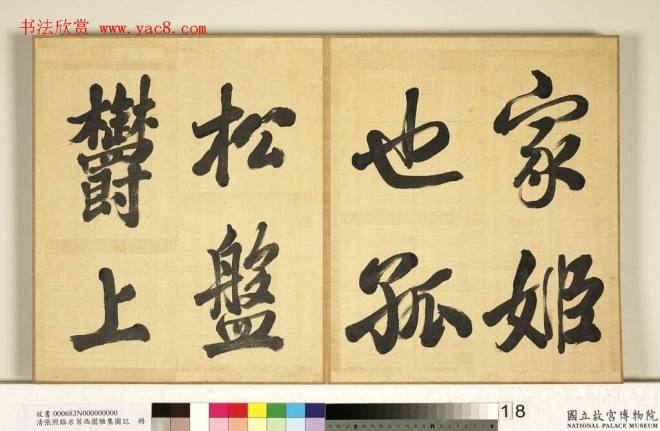 书法欣赏 www.yac8.com
家姬
也孤
松盤
欝上
故書 000683N000000000
清張照臨米芾西園雅集圖記 冊
18
國立故宮博物院
NATIONAL PALACE MUSEUM